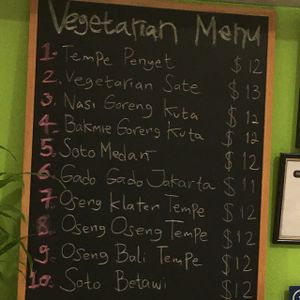 Vegetarian Menu
1. Tempe Penyet $12
2. Vegetarian Sate $13
3. Nasi Goreng Kuta $12
4. Bakmie Goreng Kuta $12
5. Soto Medan $12
6. Gado Gado Jakarta $11
7. Oseng Klaten Tempe $12
8. Oseng Oseng Tempe $12
9. Oseng Bali Tempe $12
10. Soto Betawi $12